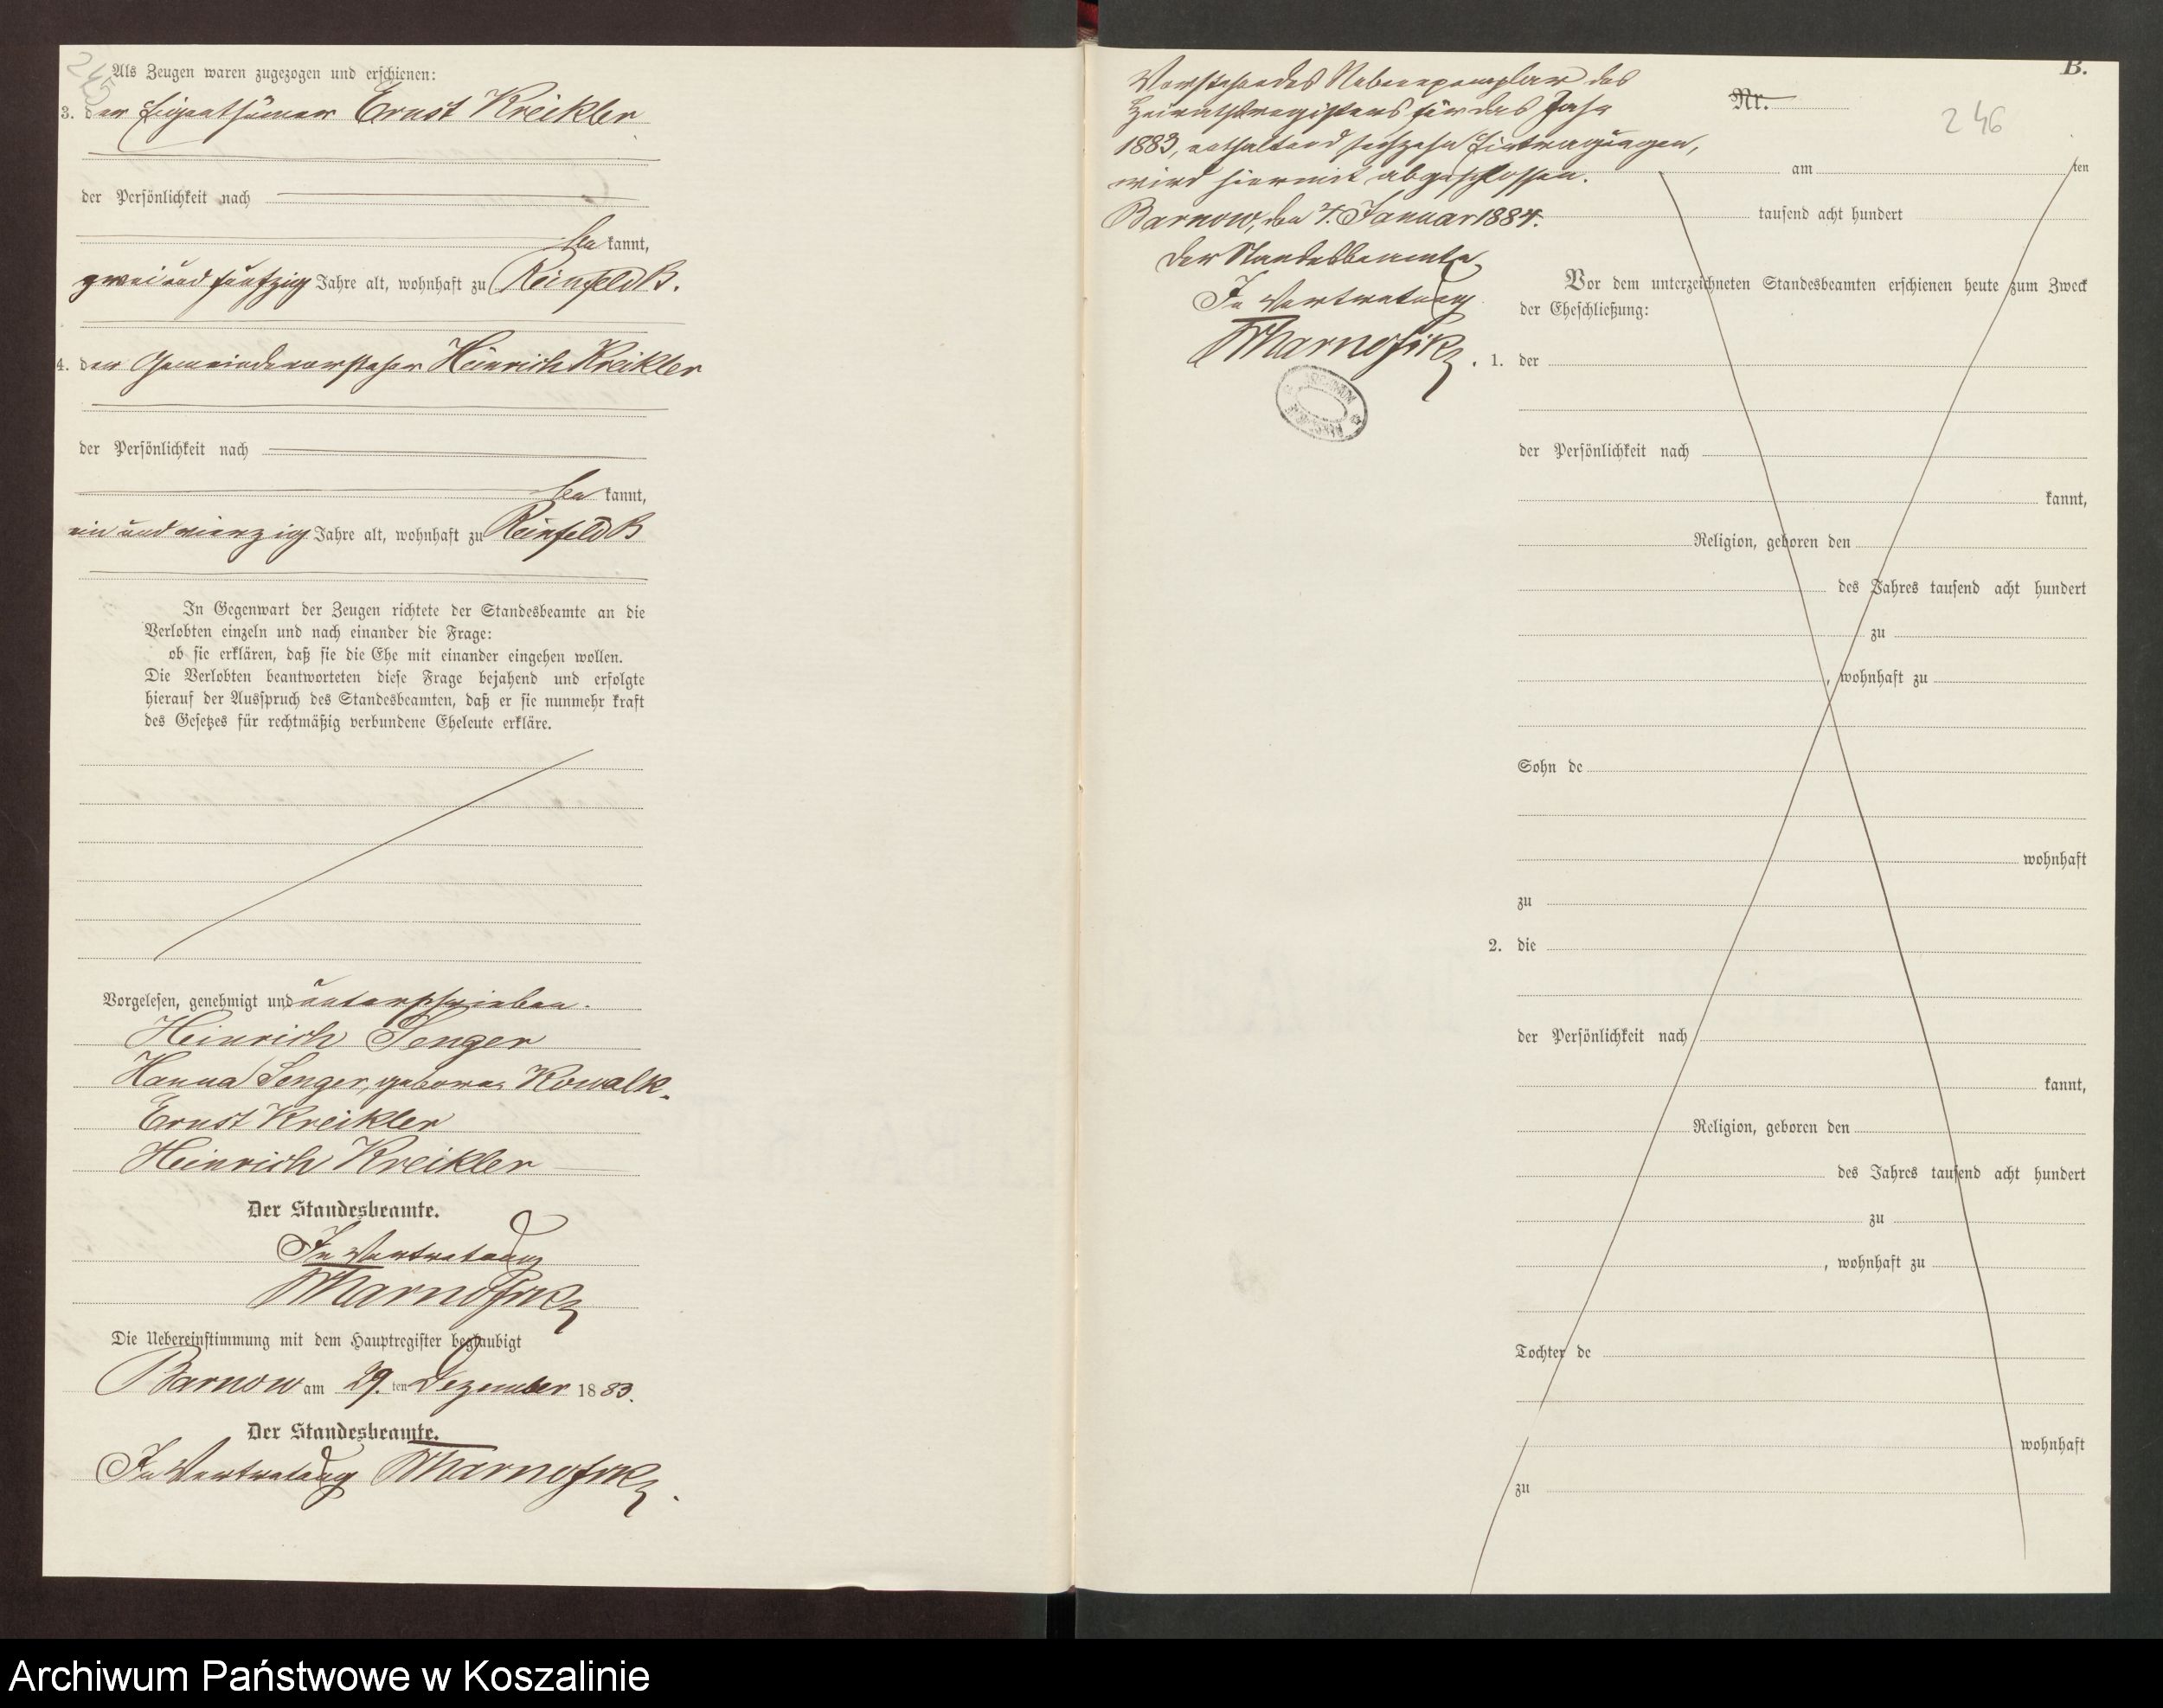 245
Als Zeugen waren zugezogen und erschienen:
3. der Eigenthümer Ernst Kreikler
der Persönlichkeit nach
be kannt,
zwei und fünfzig Jahre alt, wohnhaft zu Reinfeld B.
4. der Gemeindevorsteher Heinrich Kreikler
der Persönlichkeit nach
be kannt,
ein und vierzig Jahre alt, wohnhaft zu Reinfeld B
In Gegenwart der Zeugen richtete der Standesbeamte an die
Verlobten einzeln und nach einander die Frage:
ob sie erklären, daß sie die Ehe mit einander eingehen wollen.
Die Verlobten beantworteten diese Frage bejahend und erfolgte
hierauf der Ausspruch des Standesbeamten, daß er sie nunmehr kraft
des Gesetzes für rechtmäßig verbundene Eheleute erkläre.
Vorgelesen, genehmigt und unterschrieben.
Heinrich Senger
Hanna Senger, geborene Kowalk.
Ernst Kreikler
Heinrich Kreikler
Der Standesbeamte.
In Vertretung
Die Uebereinstimmung mit dem Hauptregister beglaubigt
Barnow am 29. ten Dezember 1883.
Der Standesbeamte.
In Vertretung
Vorstehendes Nebenexemplar des
Heirathsregisters für das Jahr
1883, enthaltend sechszehn Eintragungen,
wird hiermit abgeschlossen.
Barnow, den 4. Januar 1884.
Der Standesbeamte
In Vertretung
B.
Nr.
246
am ten
tausend acht hundert
Vor dem unterzeichneten Standesbeamten erschienen heute zum Zweck
der Eheschließung:
1. der
der Persönlichkeit nach
kannt,
Religion, geboren den
des Jahres tausend acht hundert
zu
, wohnhaft zu
Sohn de
wohnhaft
zu
2. die
der Persönlichkeit nach
kannt,
Religion, geboren den
des Jahres tausend acht hundert
zu
, wohnhaft zu
Tochter de
wohnhaft
zu
Archiwum Państwowe w Koszalinie